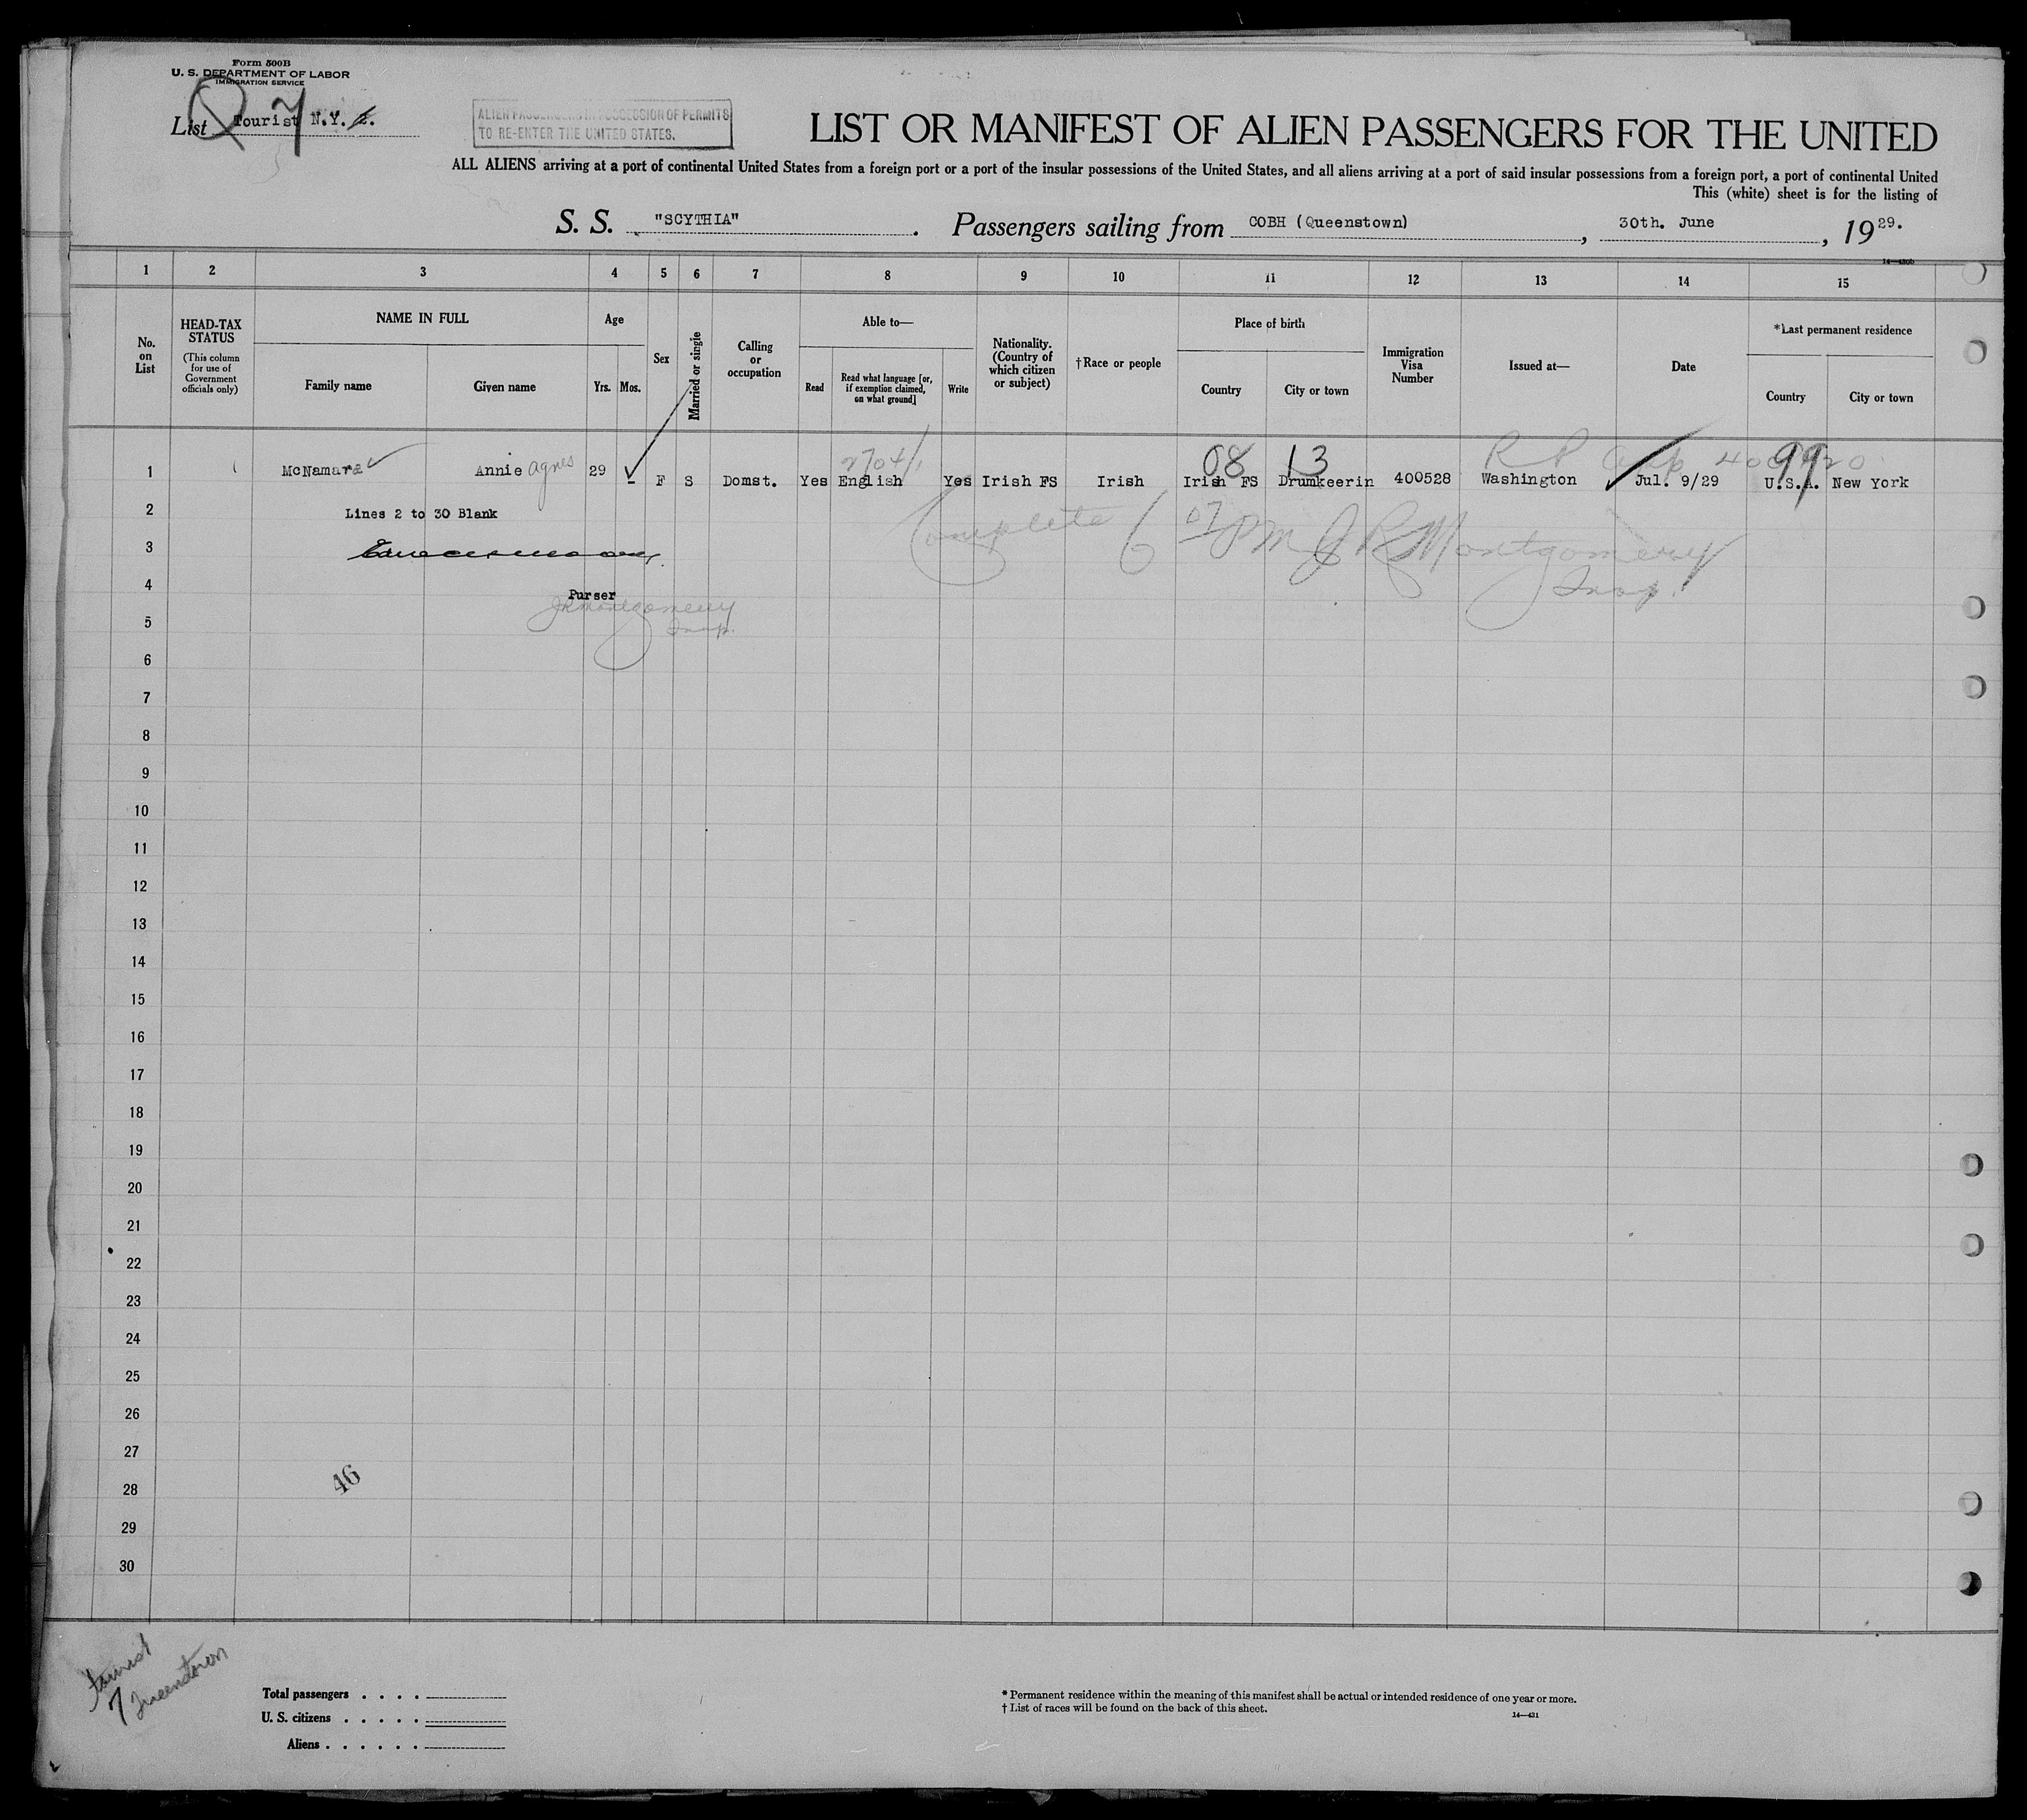 Form 500B
U. S. DEPARTMENT OF LABOR
IMMIGRATION SERVICE
List Tourist N.Y. 2. 7
ALIEN PASSENGERS IN POSSESSION OF PERMITS
TO RE-ENTER THE UNITED STATES.
LIST OR MANIFEST OF ALIEN PASSENGERS FOR THE UNITED
ALL ALIENS arriving at a port of continental United States from a foreign port or a port of the insular possessions of the United States, and all aliens arriving at a port of said insular possessions from a foreign port, a port of continental United
This (white) sheet is for the listing of
S. S. "SCYTHIA". Passengers sailing from COBH (Queenstown), 30th. June, 19 29.
14—430b
1 2 3 4 5 6 7 8 9 10 11 12 13 14 15
No. on List
HEAD-TAX STATUS (This column for use of Government officials only)
NAME IN FULL
Family name Given name
Age
Yrs. Mos.
Sex
Married or single
Calling or occupation
Able to—
Read
Read what language [or, if exemption claimed, on what ground]
Write
Nationality. (Country of which citizen or subject)
† Race or people
Place of birth
Country City or town
Immigration Visa Number
Issued at—
Date
*Last permanent residence
Country City or town
08 13 99
1 McNamara Annie Agnes 29 - F S Domst. Yes English Yes Irish FS Irish Irish FS Drumkeerin 400528 Washington Jul. 9/29 U.S.A. New York
2 Lines 2 to 30 Blank
Complete 6 07 PM J R Montgomery
Insp.
3
4 Purser
JR Montgomery
Insp.
5
6
7
8
9
10
11
12
13
14
15
16
17
18
19
20
21
22
23
24
25
26
27
28
46
29
30
tourist
7 Queenstown
Total passengers . . . .
U. S. citizens . . . . .
Aliens . . . . . .
* Permanent residence within the meaning of this manifest shall be actual or intended residence of one year or more.
† List of races will be found on the back of this sheet.
14—431